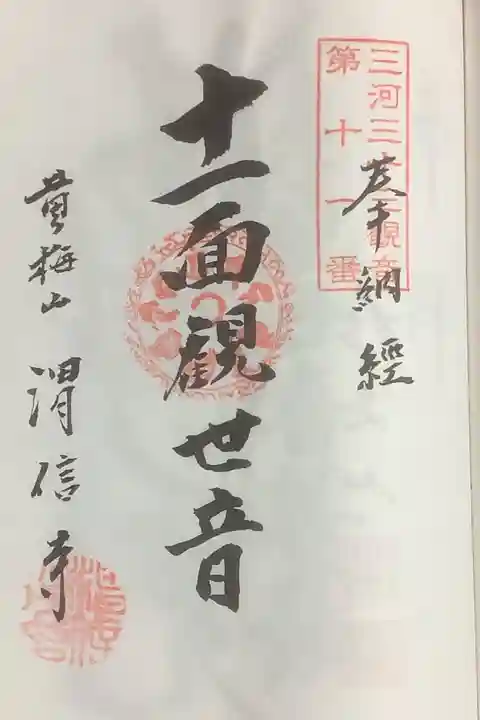 三河三十三観音
第十一番
奉納經
十一面觀世音
黄梅山 渭信寺